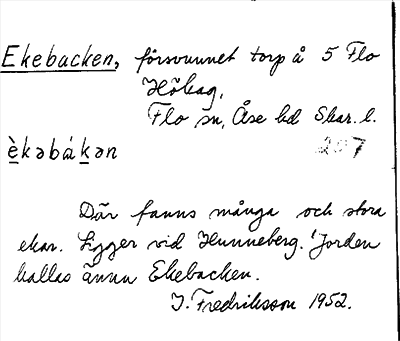 Ekebacken, försvunnet torp å 5 Flo
Höhag.
Flo sn, Åse hd Skar. l.
èkəbákən 207
Där fanns många och stora
ekar. Ligger vid Hunneberg. Jorden
kallas ännu Ekebacken.
J. Fredriksson 1952.